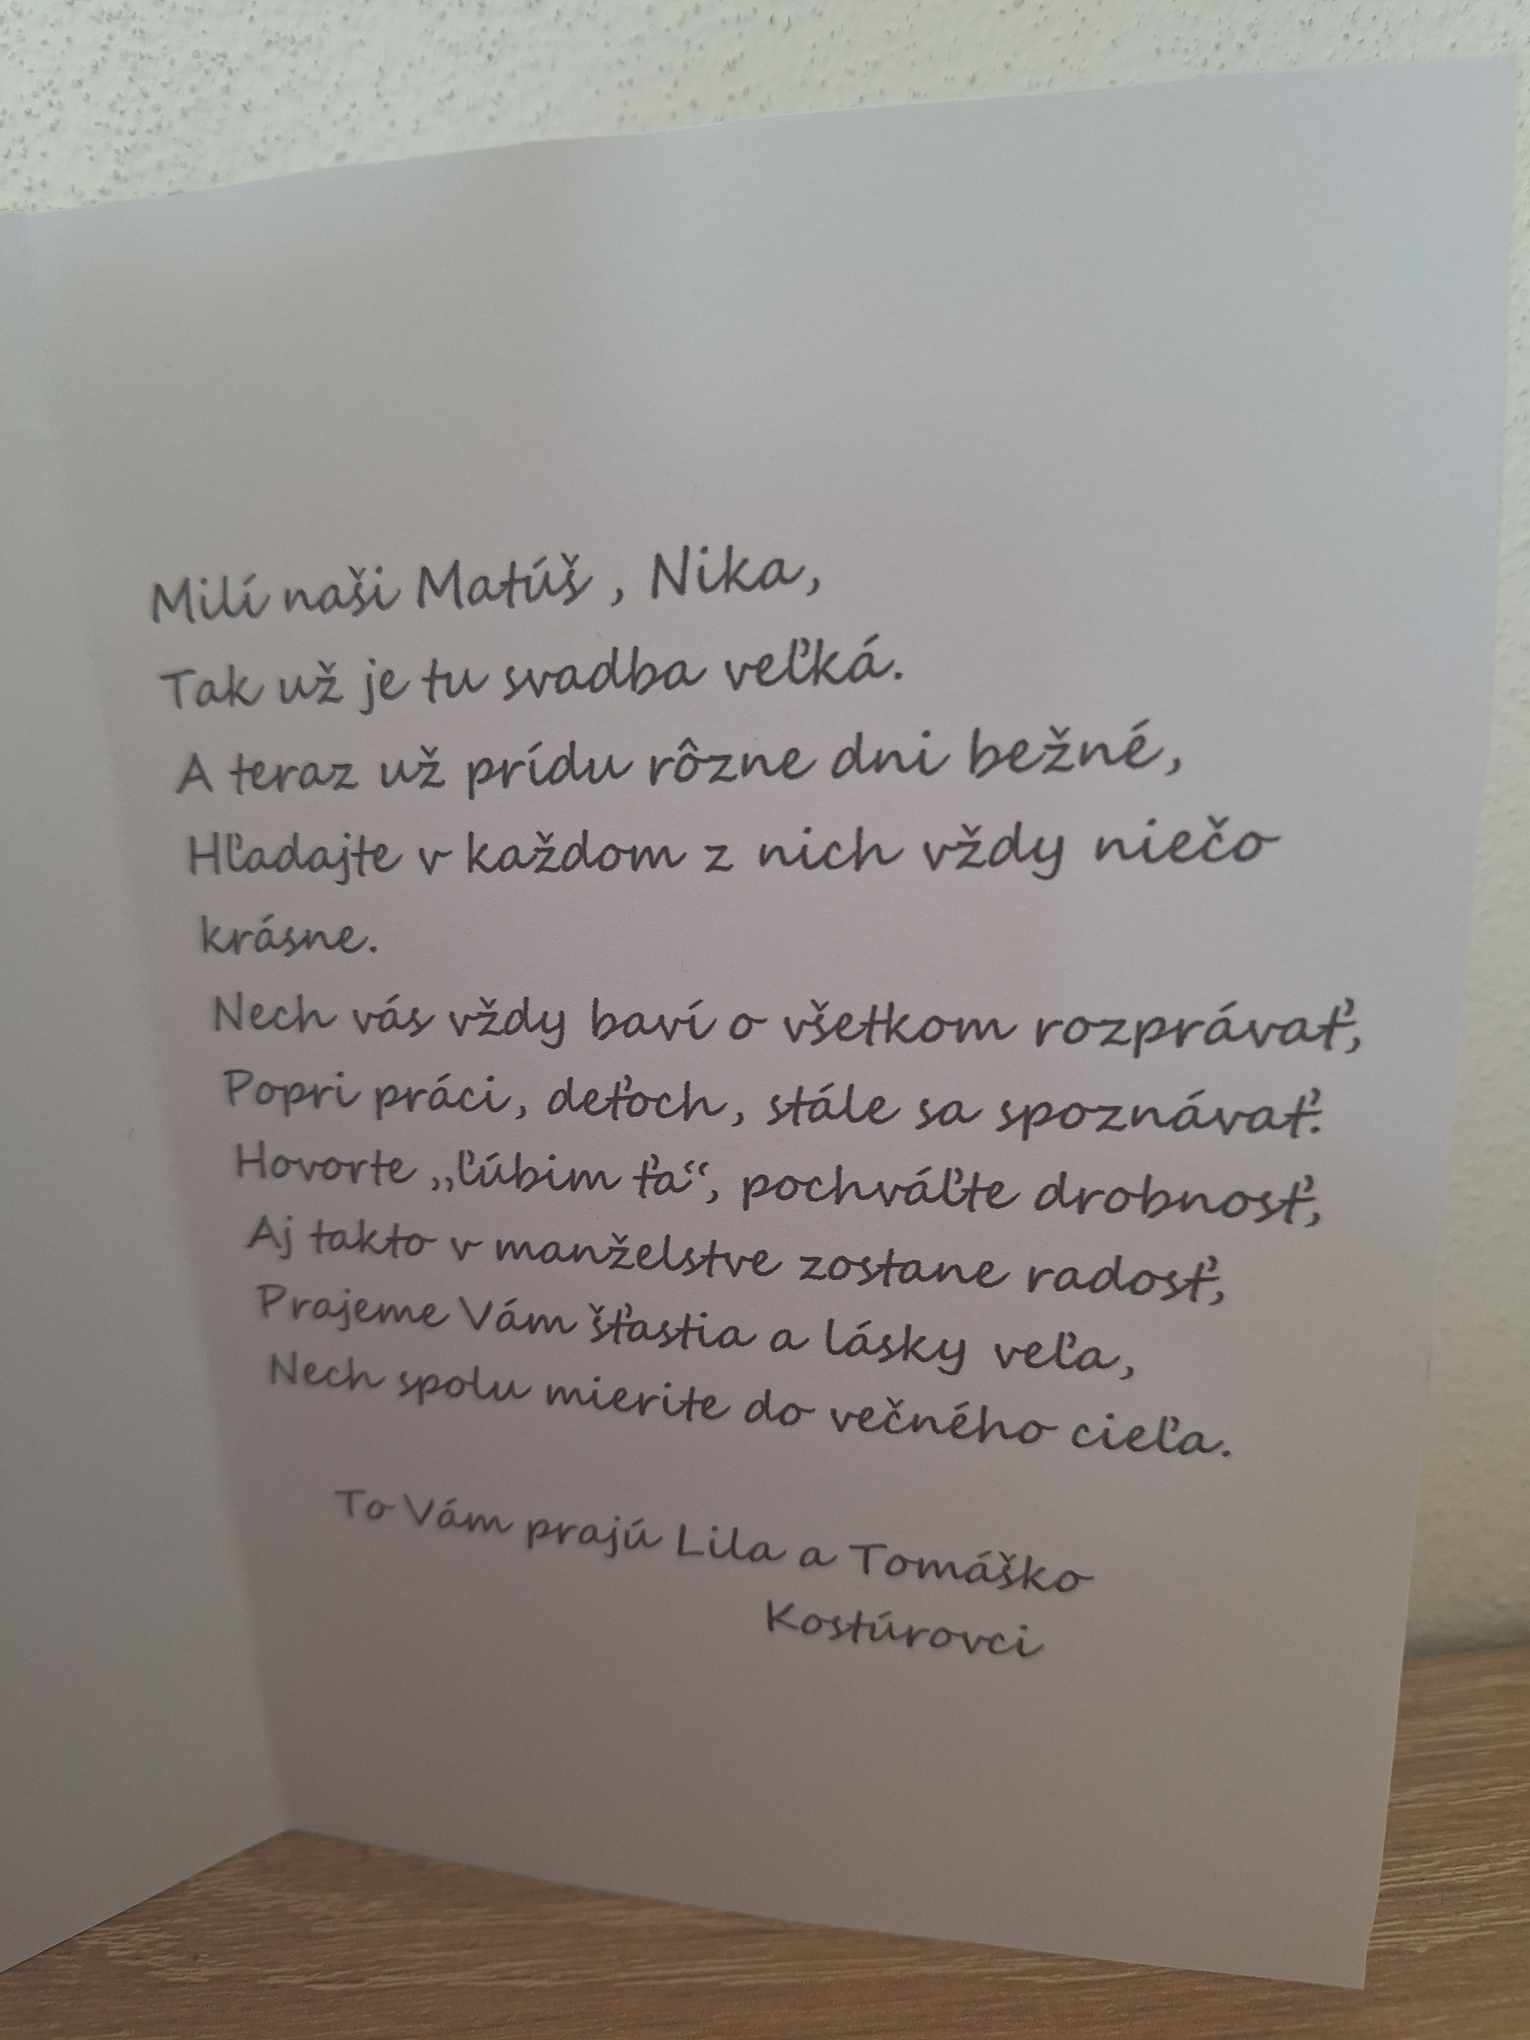 Milí naši Matúš , Nika,
Tak už je tu svadba veľká.
A teraz už prídu rôzne dni bežné,
Hľadajte v každom z nich vždy niečo
krásne.
Nech vás vždy baví o všetkom rozprávať,
Popri práci, deťoch, stále sa spoznávať.
Hovorte „ľúbim ťa“, pochváľte drobnosť,
Aj takto v manželstve zostane radosť,
Prajeme Vám šťastia a lásky veľa,
Nech spolu mierite do večného cieľa.
To Vám prajú Lila a Tomáško
Kostúrovci